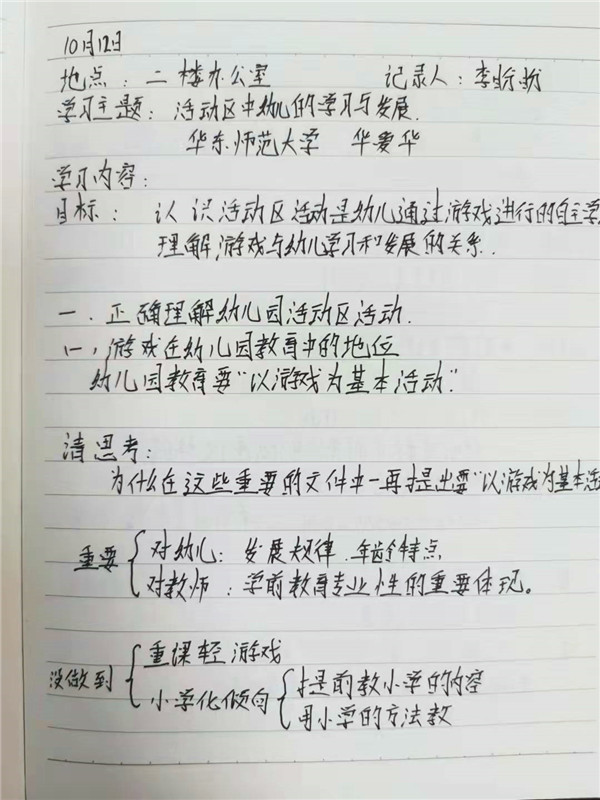 10月12日
地点：二楼办公室 记录人：李盼盼
学习主题：活动区中幼儿的学习与发展.
华东师范大学 华爱华
学习内容：
目标：认识活动区活动是幼儿通过游戏进行的自主学
理解,游戏与幼儿学习和发展的关系.
一.正确理解幼儿园活动区活动.
(一),游戏在幼儿园教育中的地位
幼儿园教育要"以游戏为基本活动."
请思考：
为什么在这些重要的文件中一再提出要"以游戏为基本活
重要 对幼儿：发展规律.年龄特点
对教师：学前教育专业性的重要体现。
没做到 重课轻游戏
小学化倾向 提前教小学的内容
用小学的方法教